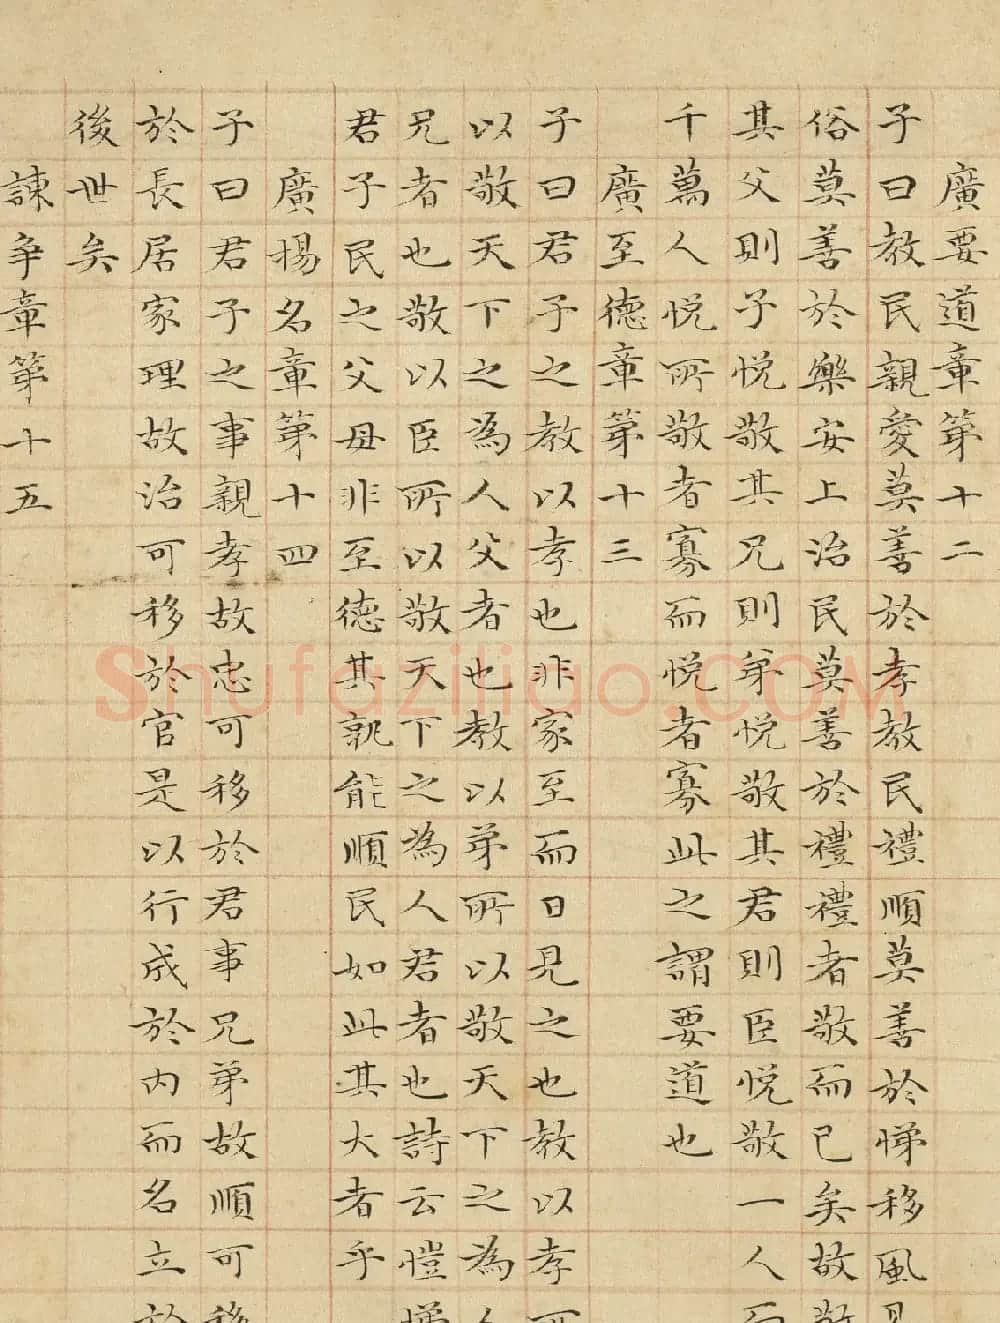 廣要道章第十二
子曰教民親愛莫善於孝教民禮順莫善於悌移風
俗莫善於樂安上治民莫善於禮禮者敬而已矣故敬
其父則子悅敬其兄則弟悅敬其君則臣悅敬一人而
千萬人悅所敬者寡而悅者寡此之謂要道也
廣至德章第十三
子曰君子之教以孝也非家至而日見之也教以孝
以敬天下之為人父者也教以弟所以敬天下之為人
兄者也敬以臣所以敬天下之為人君者也詩云愷悌
君子民之父母非至德其孰能順民如此其大者乎
廣揚名章第十四
子曰君子之事親孝故忠可移於君事兄弟故順可移
於長居家理故治可移於官是以行成於內而名立於
後世矣
諫爭章第十五
Shufaziliao.COM